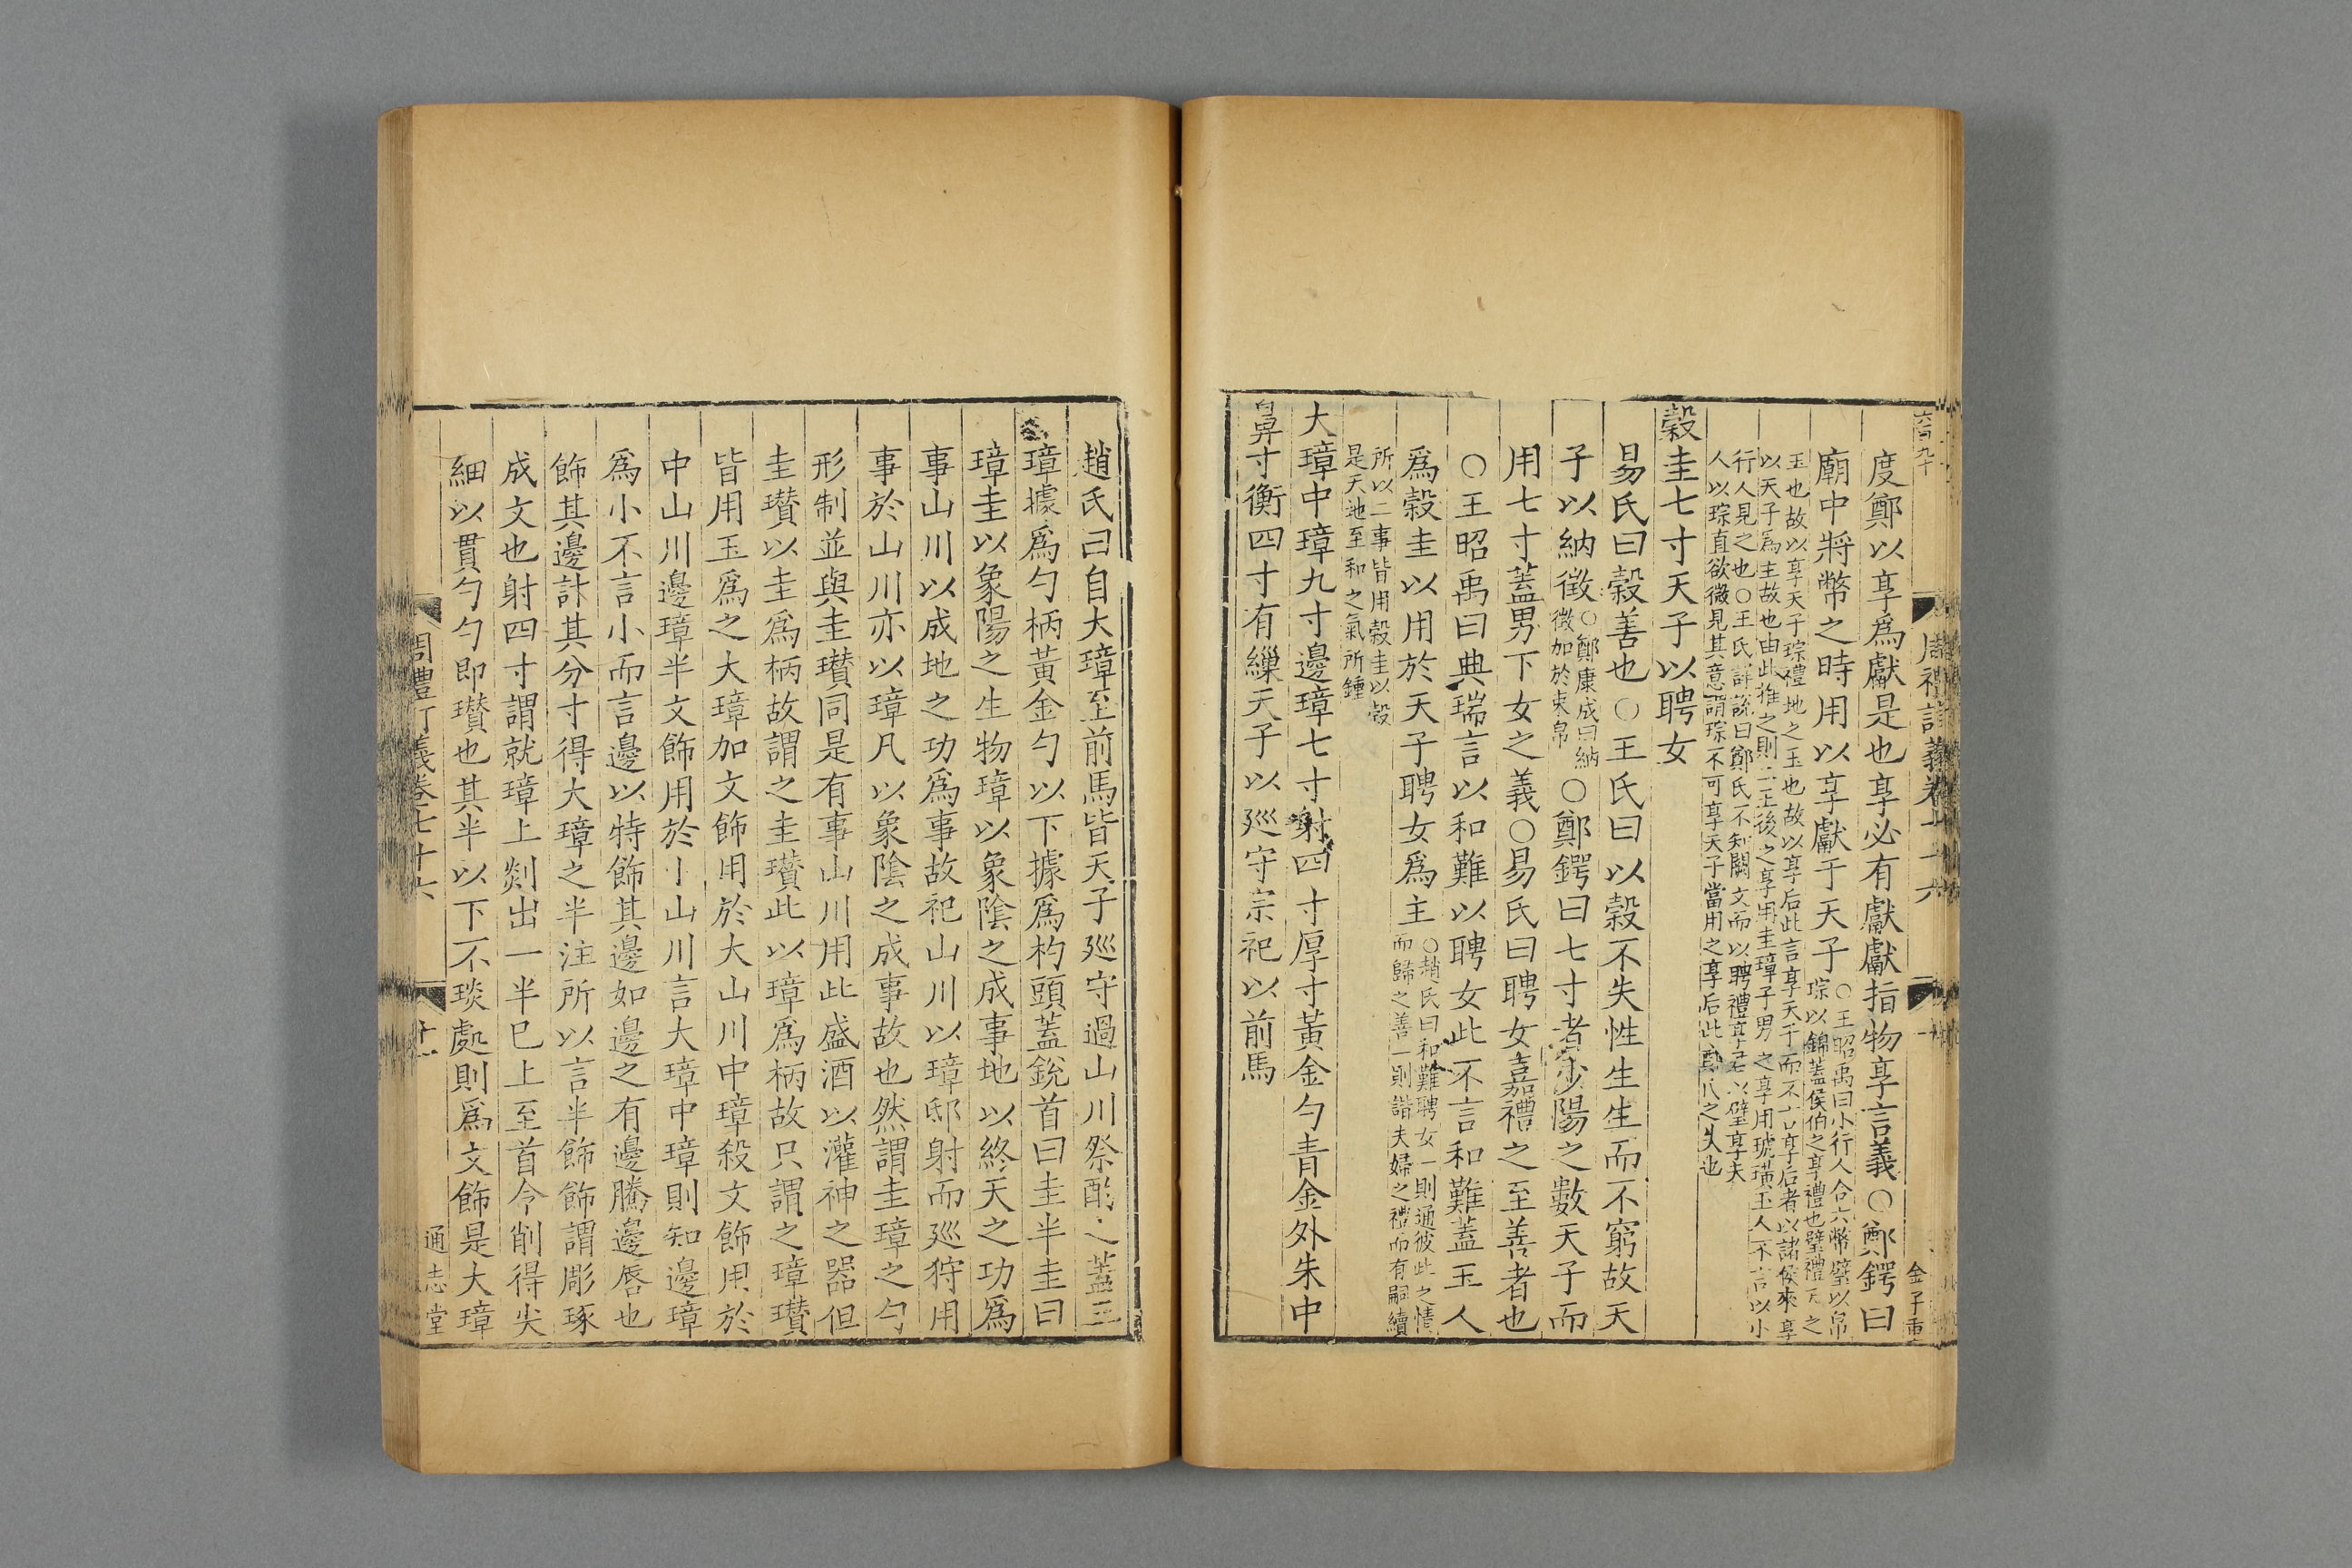 度鄭以享爲獻是也享必有獻獻指物享言義○鄭鍔曰
廟中將幣之時用以享獻于天子○王昭禹曰小行人合六幣璧以帛
琮以錦蓋侯伯之享禮也璧禮天之
玉也故以享天子琮禮地之玉也故以享后此言享天子而不言享后者以諸侯來享
以天子爲主故也由此推之則二王後之享用圭璋子男之享用琥璜玉人不言以小
行人見之也○王氏詳說曰鄭氏不知闕文而以聘禮享君以璧享夫
人以琮直欲微見其意謂琮不可享天子當用之享后此鄭氏之失也
穀圭七寸天子以聘女
易氏曰穀善也○王氏曰以穀不失性生生而不窮故天
子以納徵○鄭康成曰納
徵加於束帛○鄭鍔曰七寸者少陽之數天子而
用七寸蓋男下女之義○易氏曰聘女嘉禮之至善者也
○王昭禹曰典瑞言以和難以聘女此不言和難蓋玉人
爲穀圭以用於天子聘女爲主○趙氏曰和難聘女一則通彼此之情
而歸之善一則諧夫婦之禮而有嗣續
所以二事皆用穀圭以穀
是天地至和之氣所鍾
大璋中璋九寸邊璋七寸射四寸厚寸黃金勺青金外朱中
鼻寸衡四寸有繅天子以巡守宗祀以前馬
趙氏曰自大璋至前馬皆天子巡守過山川祭酌之蓋三
璋據爲勺柄黃金勺以下據爲杓頭蓋銳首曰圭半圭曰
璋圭以象陽之生物璋以象陰之成事地以終天之功爲
事山川以成地之功爲事故祀山川以璋邸射而巡狩用
事於山川亦以璋凡以象陰之成事故也然謂圭璋之勺
形制並與圭瓚同是有事山川用此盛酒以灌神之器但
圭瓚以圭爲柄故謂之圭瓚此以璋爲柄故只謂之璋瓚
皆用玉爲之大璋加文飾用於大山川中璋殺文飾用於
中山川邊璋半文飾用於小山川言大璋中璋則知邊璋
爲小不言小而言邊以特飾其邊如邊之有邊騰邊唇也
飾其邊計其分寸得大璋之半注所以言半飾飾謂彫琢
成文也射四寸謂就璋上剡出一半已上至首今削得尖
細以貫勺勺即瓚也其半以下不琰處則爲文飾是大璋
周禮訂義卷七十六
十一
通志堂